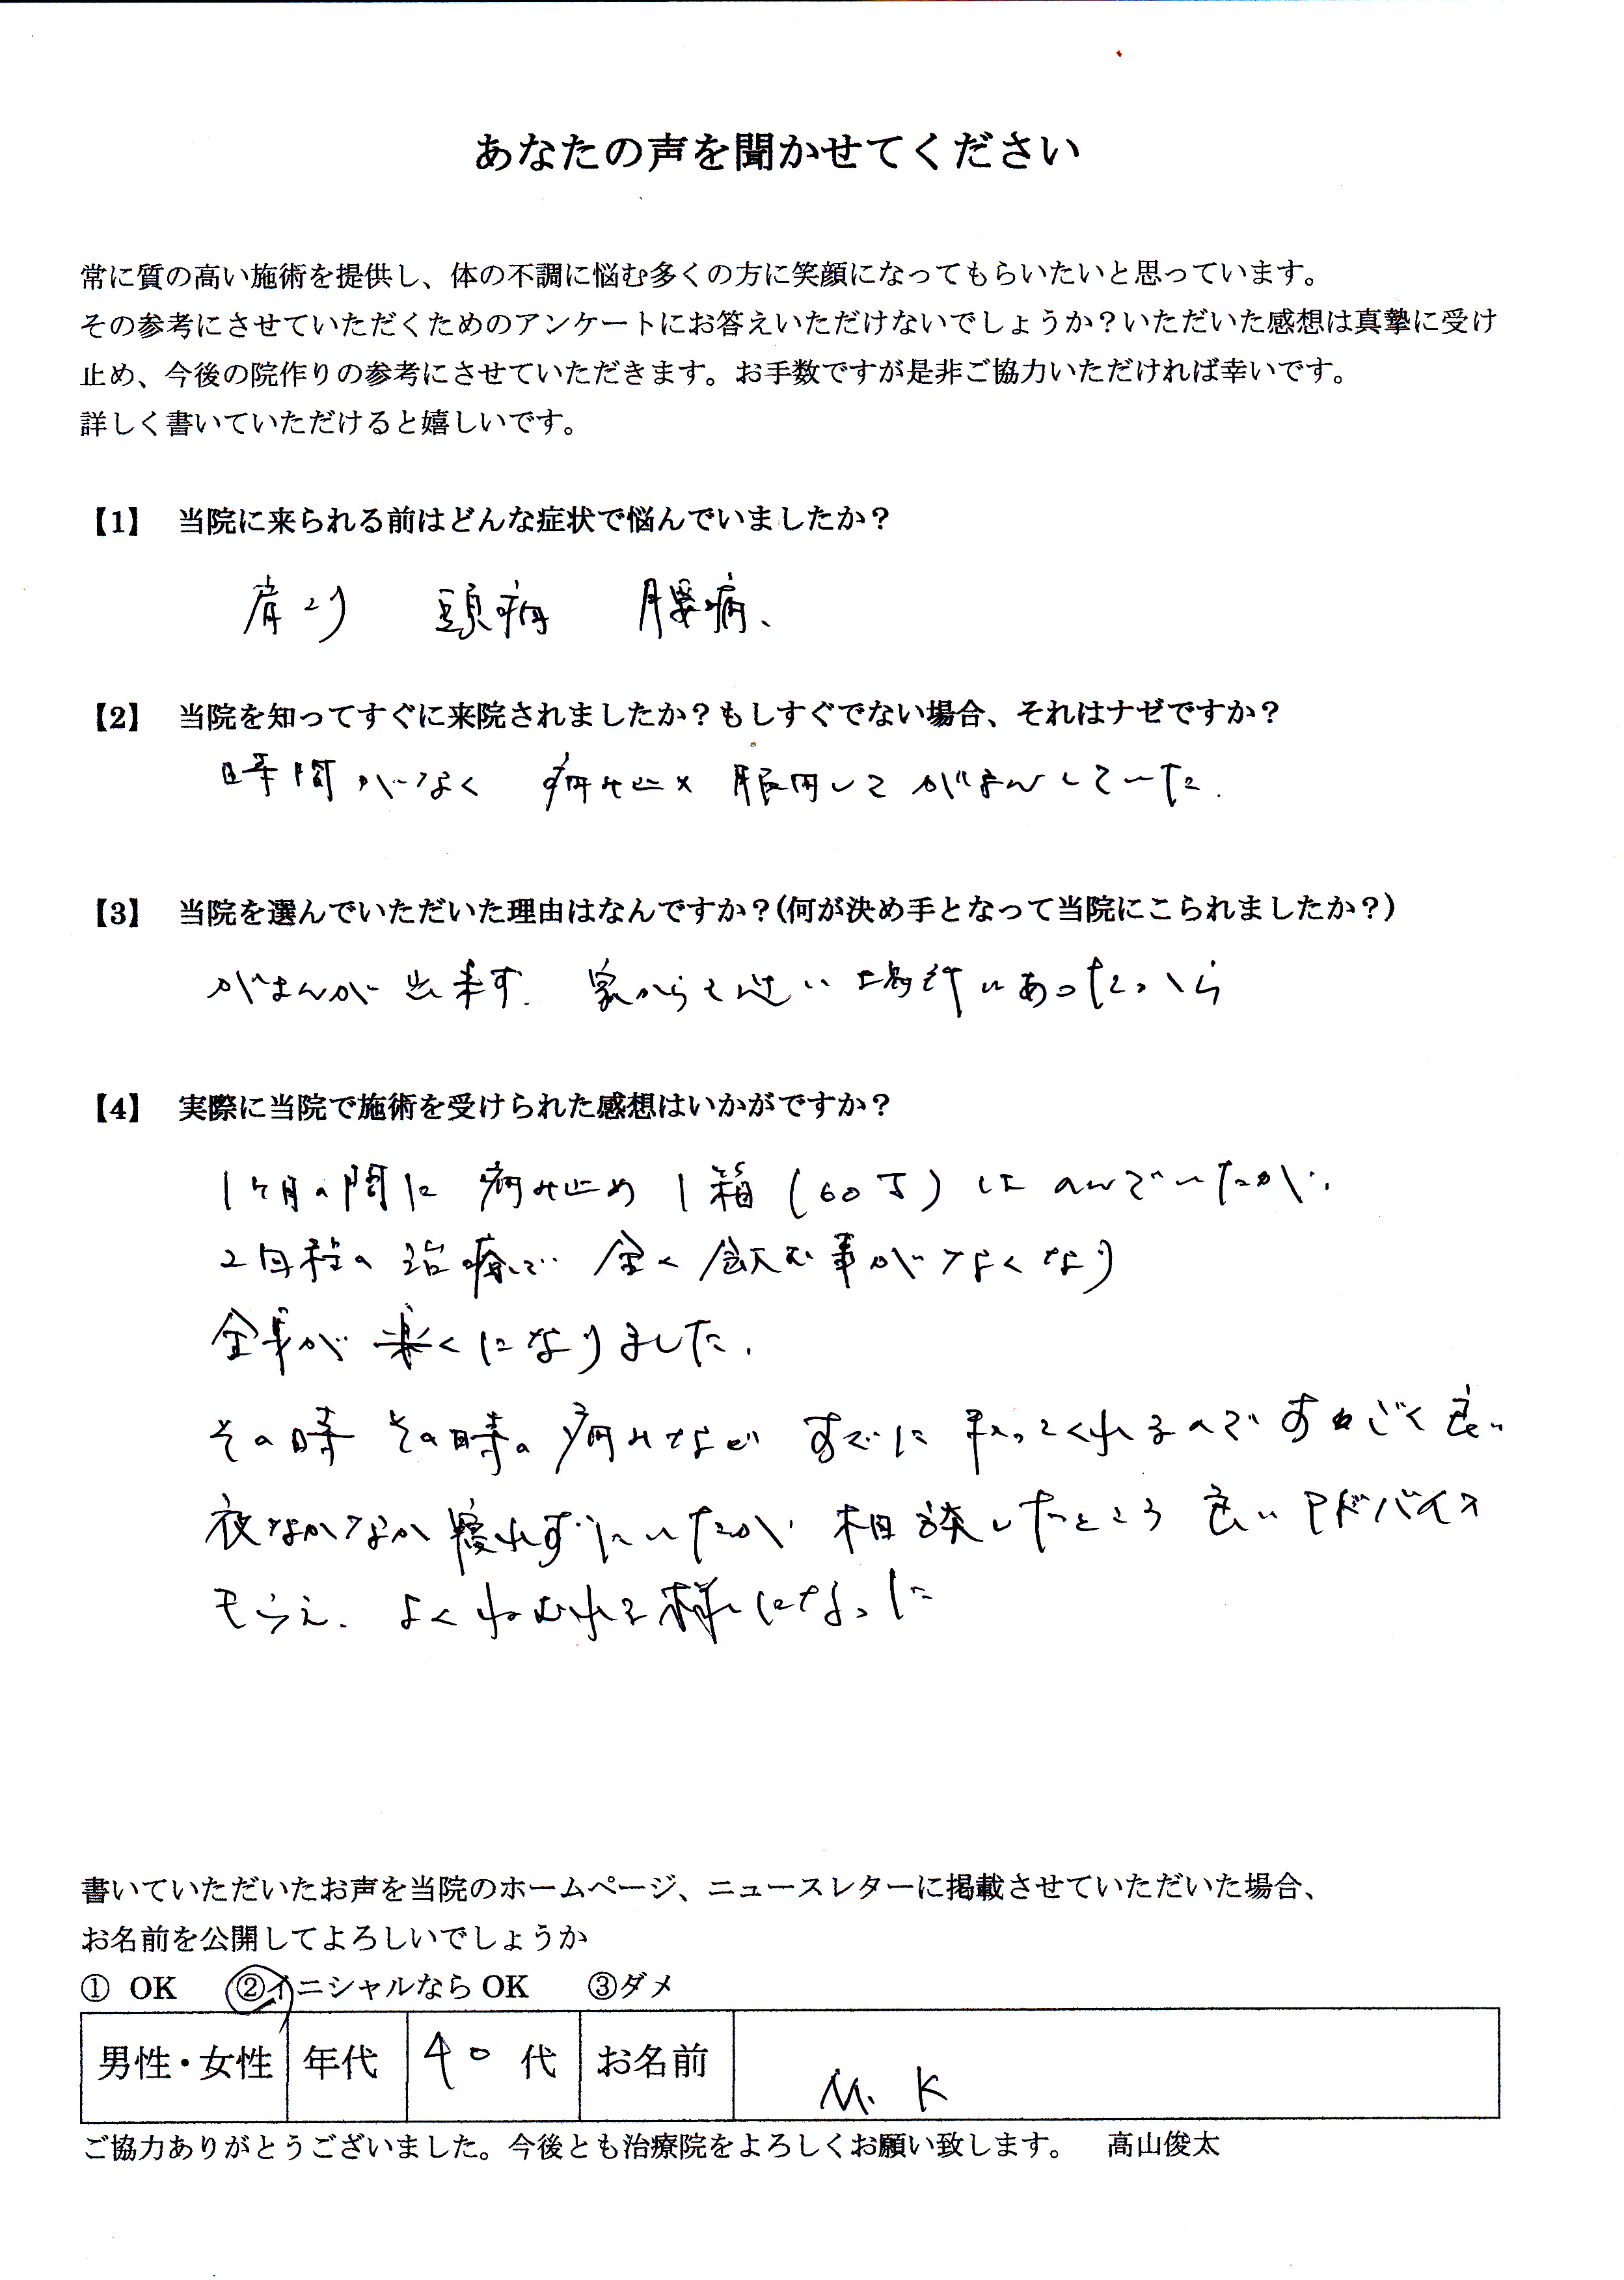 あなたの声を聞かせてください
常に質の高い施術を提供し、体の不調に悩む多くの方に笑顔になってもらいたいと思っています。
その参考にさせていただくためのアンケートにお答えいただけないでしょうか？いただいた感想は真摯に受け
止め、今後の院作りの参考にさせていただきます。お手数ですが是非ご協力いただければ幸いです。
詳しく書いていただけると嬉しいです。
【1】 当院に来られる前はどんな症状で悩んでいましたか？
肩こり 頭痛 腰痛、
【2】 当院を知ってすぐに来院されましたか？もしすぐでない場合、それはナゼですか？
時間がなく 痛み止め服用してがまんしていた.
【3】 当院を選んでいただいた理由はなんですか？(何が決め手となって当院にこられましたか？)
がまんが出来ず. 家からも近い場所にあったから
【4】 実際に当院で施術を受けられた感想はいかがですか？
1ヶ月の間に 痛み止め1箱(60丁)はのんでいたが、
2回程の治療で 全く飲む事がなくなり
全身が楽くになりました.
その時その時の痛みなど すぐに とってくれるので すごく良い
夜なかなか寝れずにいたが 相談したところ 良いアドバイス
もらえ. よくねむれる様になった
書いていただいたお声を当院のホームページ、ニュースレターに掲載させていただいた場合、
お名前を公開してよろしいでしょうか
① OK ②イニシャルなら OK ③ダメ
男性・女性 年代 40 代 お名前 M. K
ご協力ありがとうございました。今後とも治療院をよろしくお願い致します。 高山俊太